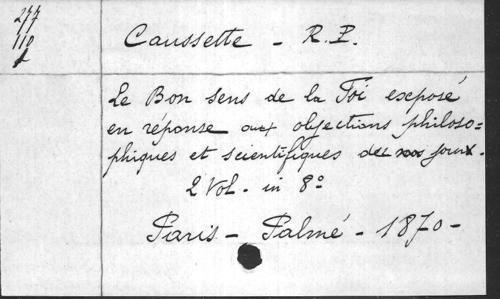 277
110
1
Caussette - R. P.
Le Bon sens de la Foi exposé
en réponse aux objections philoso=
phiques et scientifiques des jours.
2 Vol. in 8º
Paris - Palmé - 1870 -